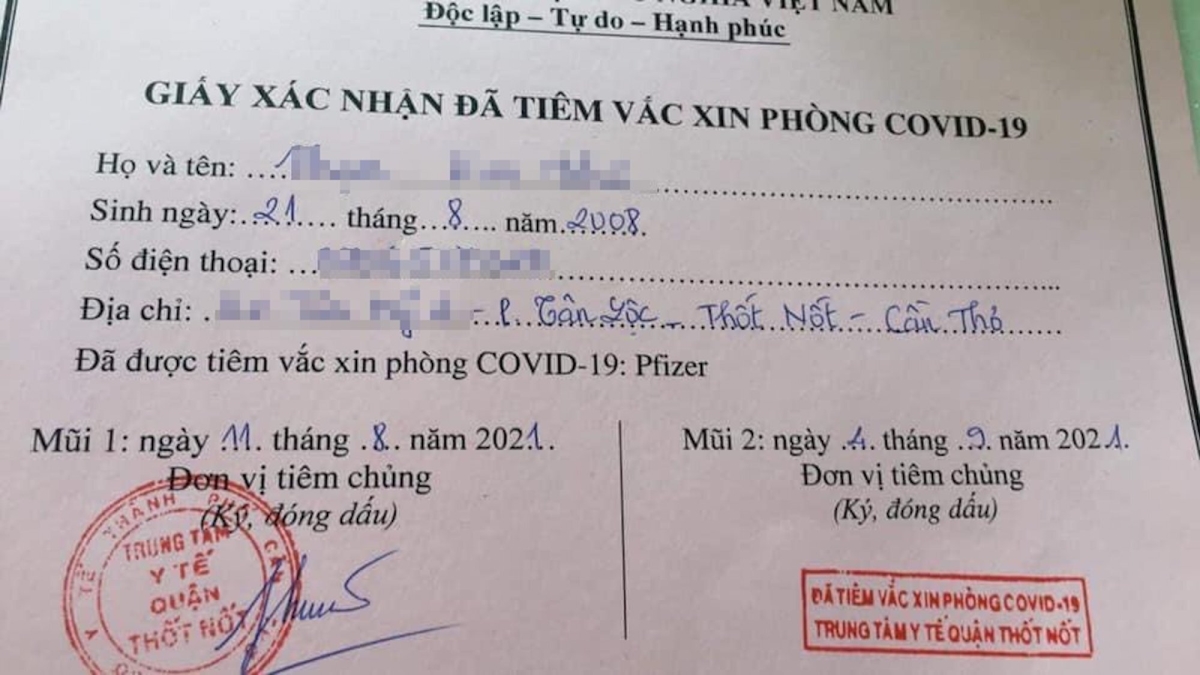 NGHĨA VIỆT NAM
Độc lập – Tự do – Hạnh phúc
GIẤY XÁC NHẬN ĐÃ TIÊM VẮC XIN PHÒNG COVID-19
Họ và tên:
Sinh ngày: 21 tháng 8 năm 2008.
Số điện thoại:
Địa chỉ: - P. Tân Lộc - Thốt Nốt - Cần Thơ
Đã được tiêm vắc xin phòng COVID-19: Pfizer
Mũi 1: ngày 11. tháng .8.. năm 2021.
Đơn vị tiêm chủng
(Ký, đóng dấu)
Y TẾ THÀNH PHỐ CẦN
TRUNG TÂM
Y TẾ
QUẬN
THỐT NỐT
Mũi 2: ngày .4. tháng .9. năm 2021.
Đơn vị tiêm chủng
(Ký, đóng dấu)
ĐÃ TIÊM VẮC XIN PHÒNG COVID-19
TRUNG TÂM Y TẾ QUẬN THỐT NỐT